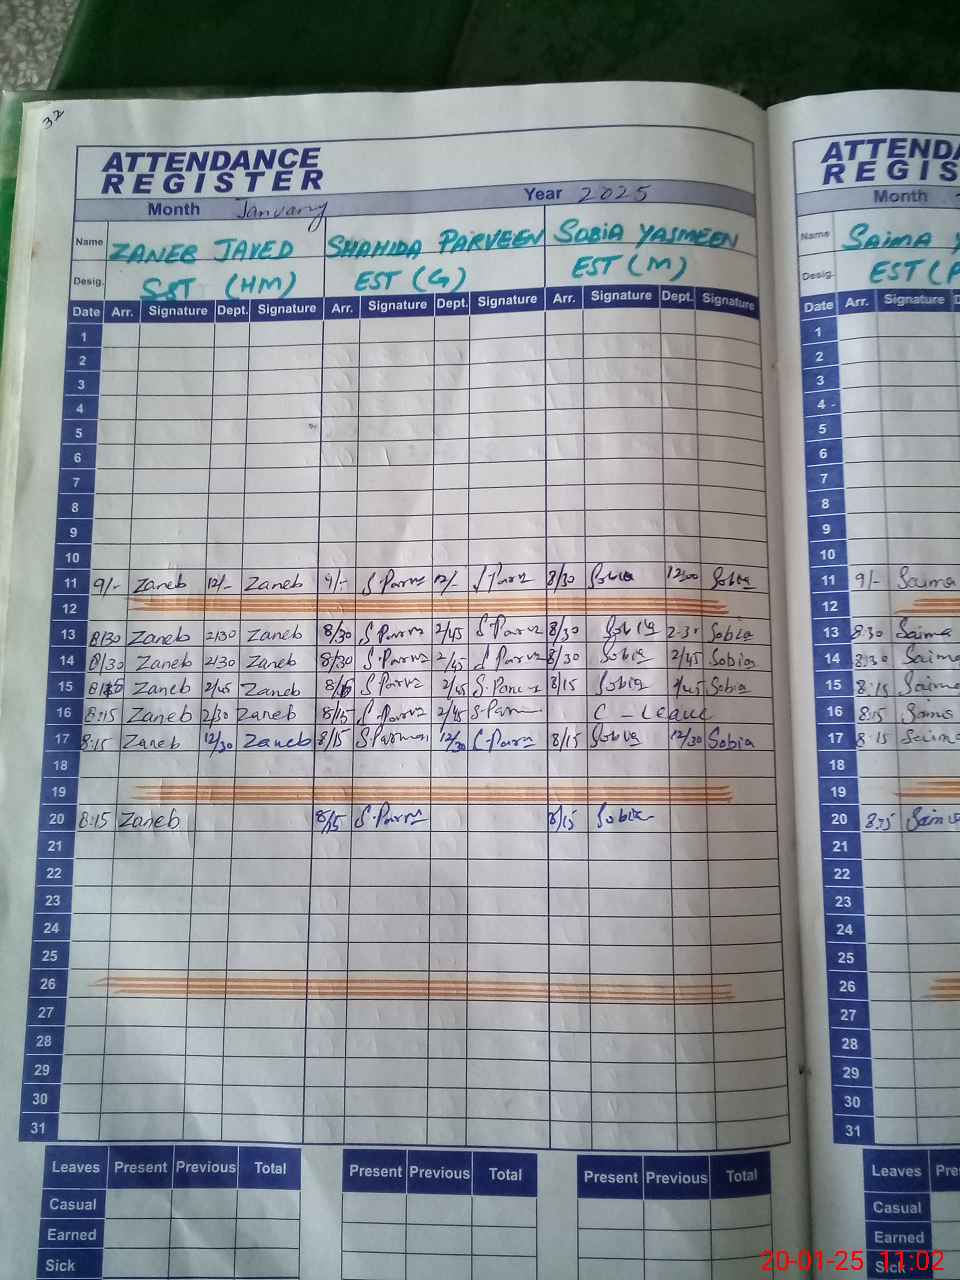 32
ATTENDANCE
REGISTER
Month January Year 2025
Name ZANEB JAVED SHAHIDA PARVEEN SOBIA YASMEEN
Desig. SST (HM) EST (G) EST (M)
Date Arr. Signature Dept. Signature Arr. Signature Dept. Signature Arr. Signature Dept. Signature
1
2
3
4
5
6
7
8
9
10
11 9/- Zaneb 12/- Zaneb 9/- 12/- 8/30 Sobia 12:00 Sobia
12
13 8/30 Zaneb 2/30 Zaneb 8/30 2/45 8/30 Sobia 2:30 Sobia
14 8/30 Zaneb 2/30 Zaneb 8/30 2/45 8/30 Sobia 2/45 Sobia
15 Zaneb 2/45 Zaneb 2/45 8/15 Sobia 2/45 Sobia
16 8:15 Zaneb 2/30 Zaneb 8/15 2/45 C - Leave
17 8:15 Zaneb 12/30 Zaneb 8/15 12/30 8/15 Sobia 12/30 Sobia
18
19
20 8:15 Zaneb 8/15 8/15 Sobia
21
22
23
24
25
26
27
28
29
30
31
Leaves Present Previous Total Present Previous Total Present Previous Total
Casual
Earned
Sick
ATTENDA
REGIS
Month
Name SAIMA Y
Desig. EST (P
Date Arr. Signature D
1
2
3
4
5
6
7
8
9
10
11 9/- Saima
12
13 8:30 Saima
14 8:30 Saima
15 8:15 Saima
16 8:15 Saima
17 8:15 Saima
18
19
20 8:15 Saima
21
22
23
24
25
26
27
28
29
30
31
Leaves Pre
Casual
Earned
Sick
20-01-25 11:02